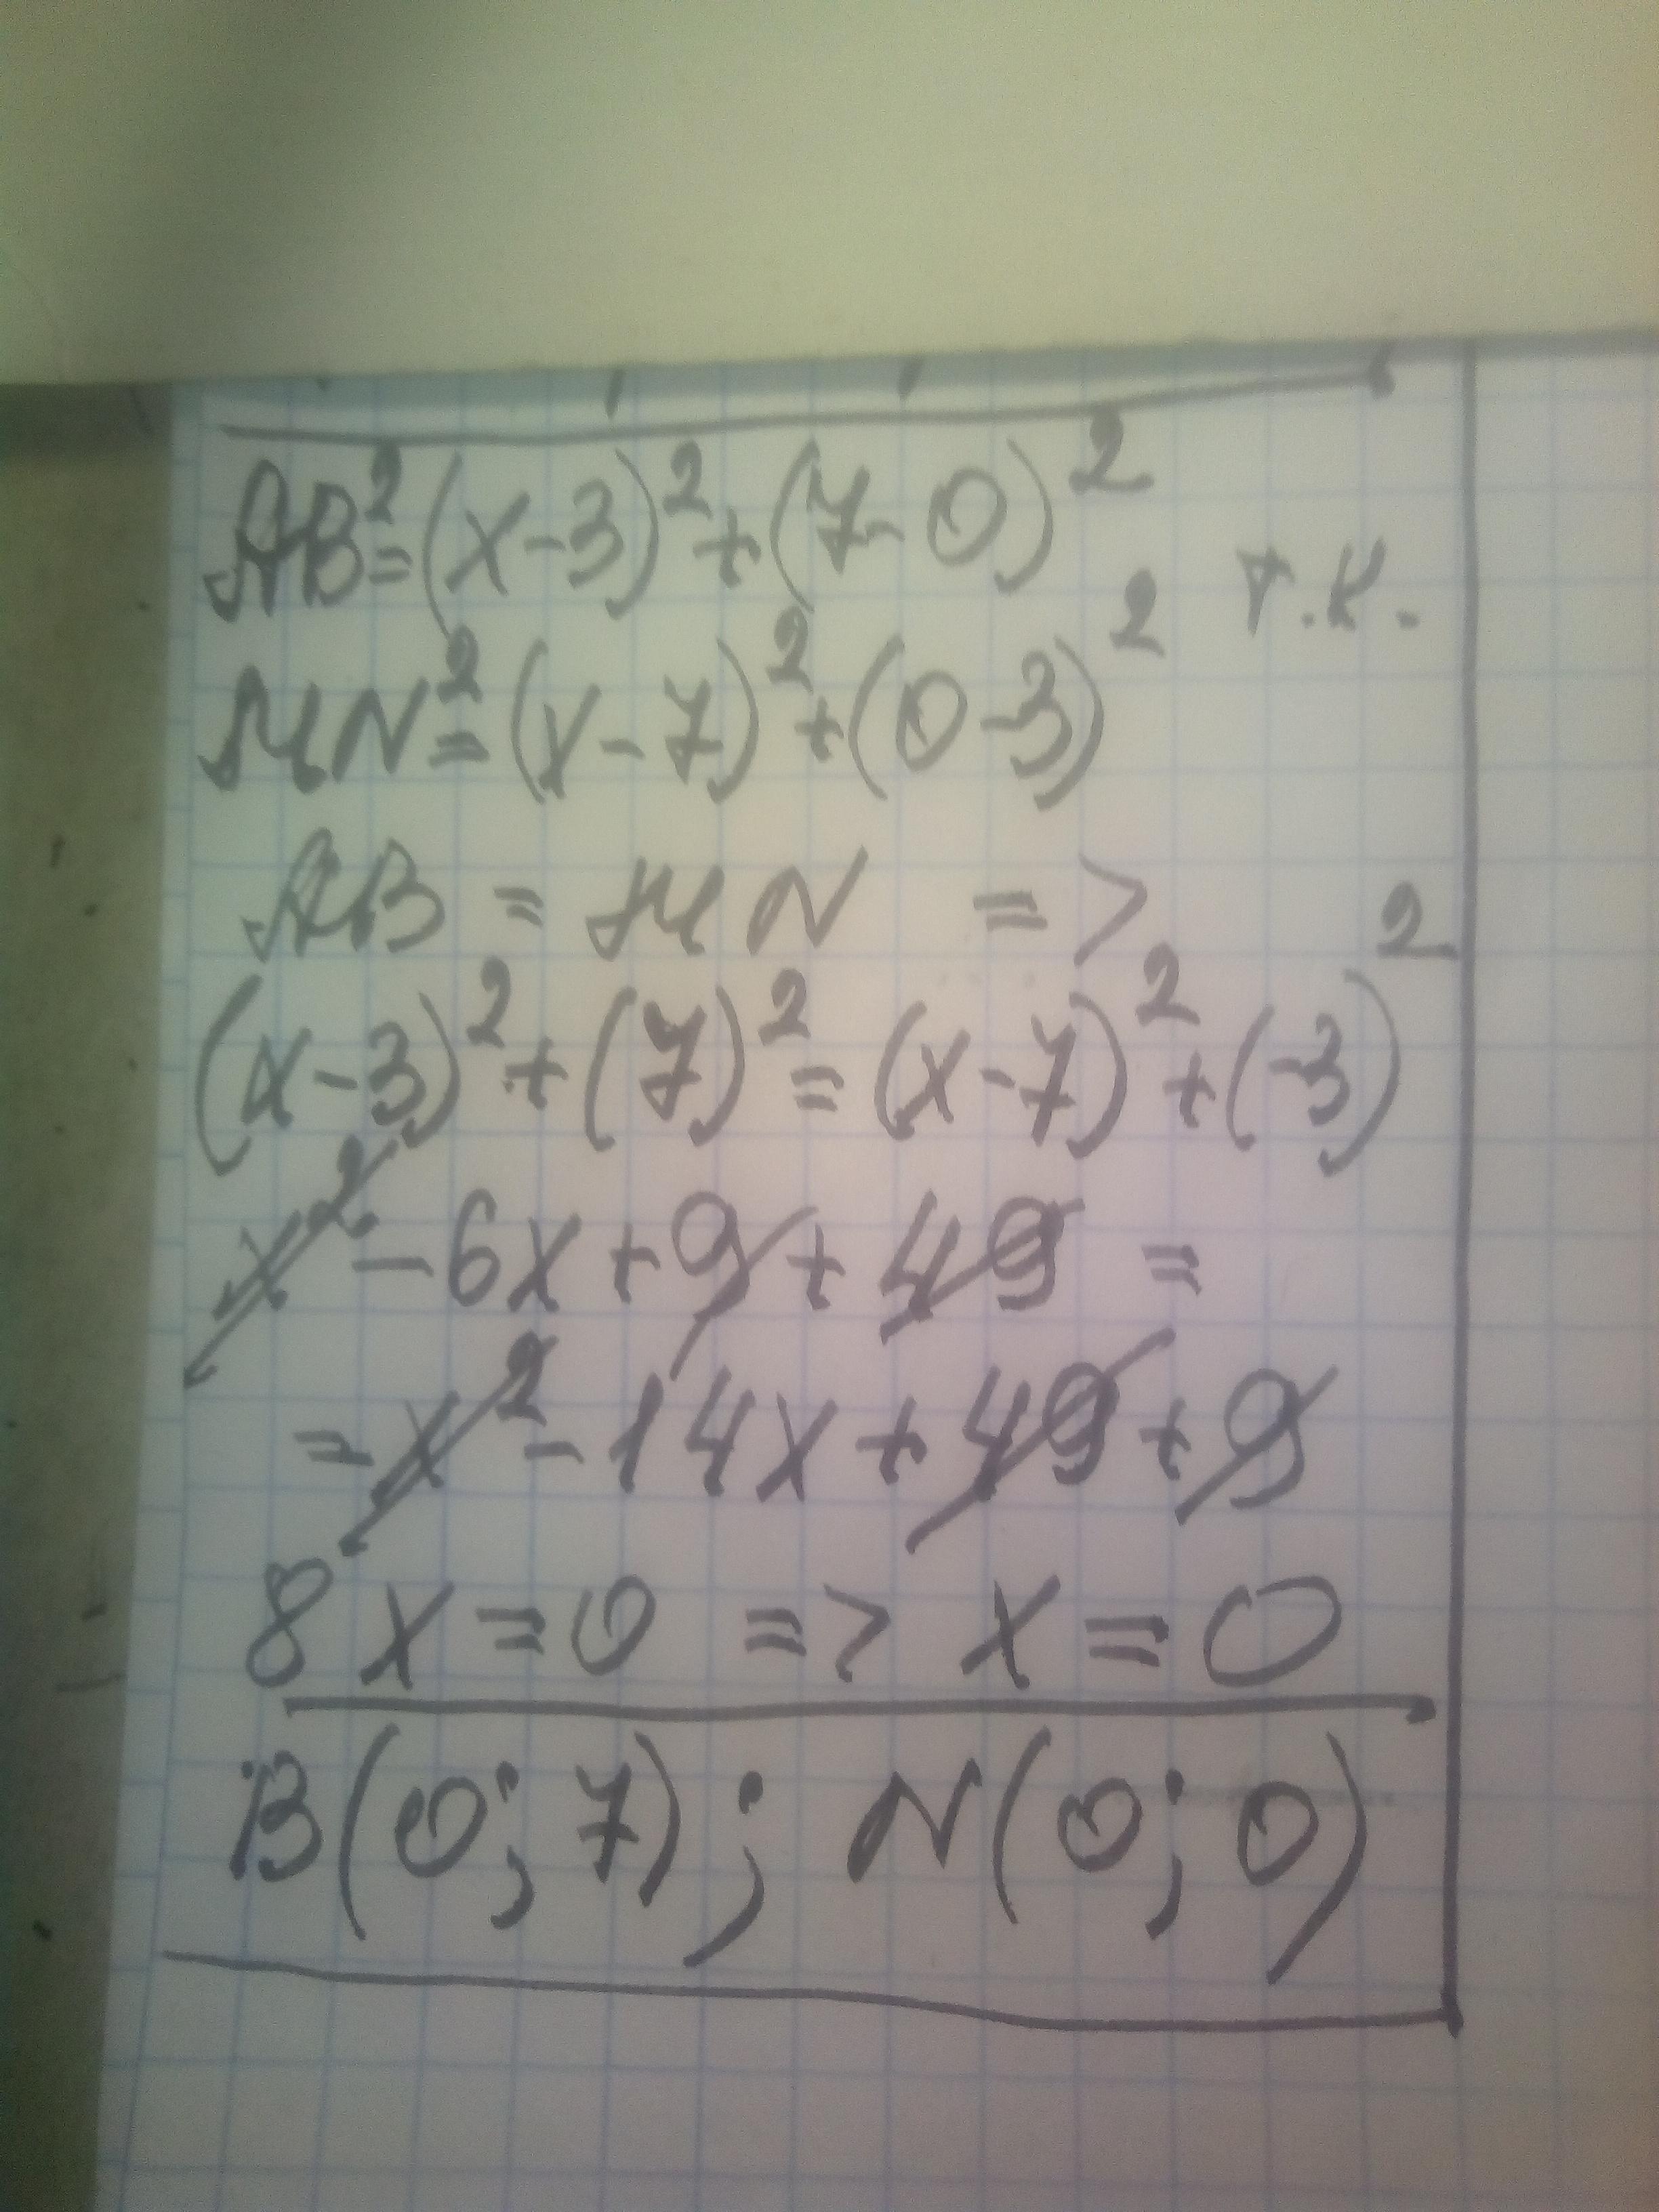 AB²=(x-3)²+(7-0)²
MN²=(x-7)²+(0-3)² т.к.
AB = MN =>
(x-3)²+(7)²=(x-7)²+(-3)²
x²-6x+9+49=
=x²-14x+49+9
8x=0 => x=0
B(0;7); N(0;0)